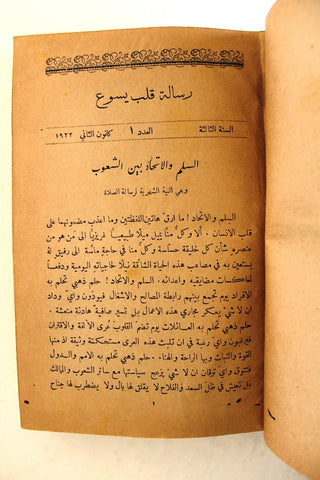 رسالة قلب يسوع
السنة الثالثة العدد ١ كانون الثاني ١٩٢٢
السلم والاتحاد بين الشعوب
وهي النية الشهرية لرسالة الصلاة
السلم والاتحاد ! ما ارق هاتين اللفظتين وما اعذب مضمونهما على
قلب الانسان . ألا وكلٌ منَّا يميل ميلًا طبيعيًّا غريزيًّا الى مَن هو من
عنصره شأن كل خليقة حسَّاسة وكلٌ منا في حاجة ماسَّة الى رفيق له
يستعين به في مصاعب هذه الحياة الشاقة نيلًا لحاجياته اليومية ودفعًا
لمعاكسات مضايقيه واعدائه . السلم والاتحاد ! حلم ذهبي تحلم به
الافراد يوم تجمع بينهم رابطة الصالح والاشغال فيودُّون وأيّ وداد
ان لا شيَ يعكر مجاري هذه الاعمال بل تسير صافية هادئة منعشة .
حلم ذهبي تحلم به العائلات يوم تضم القلوب عُرى الألفة والاقتران
فيرغبون وأي رغبة في ان تلبث هذه العرى مستحكمة وثيقة اذ منها
القوة والثبات وبها الراحة والهناء . حلم ذهبي تحلم به الامم والدول
فتتوق وأي توقان ان لا شيَ يزعج سياستها مع سائر الشعوب والمالك
بل تعيش في ظلّ السعد والفلاح لا يقلق لها بال ولا يضطرب لها جناح
١